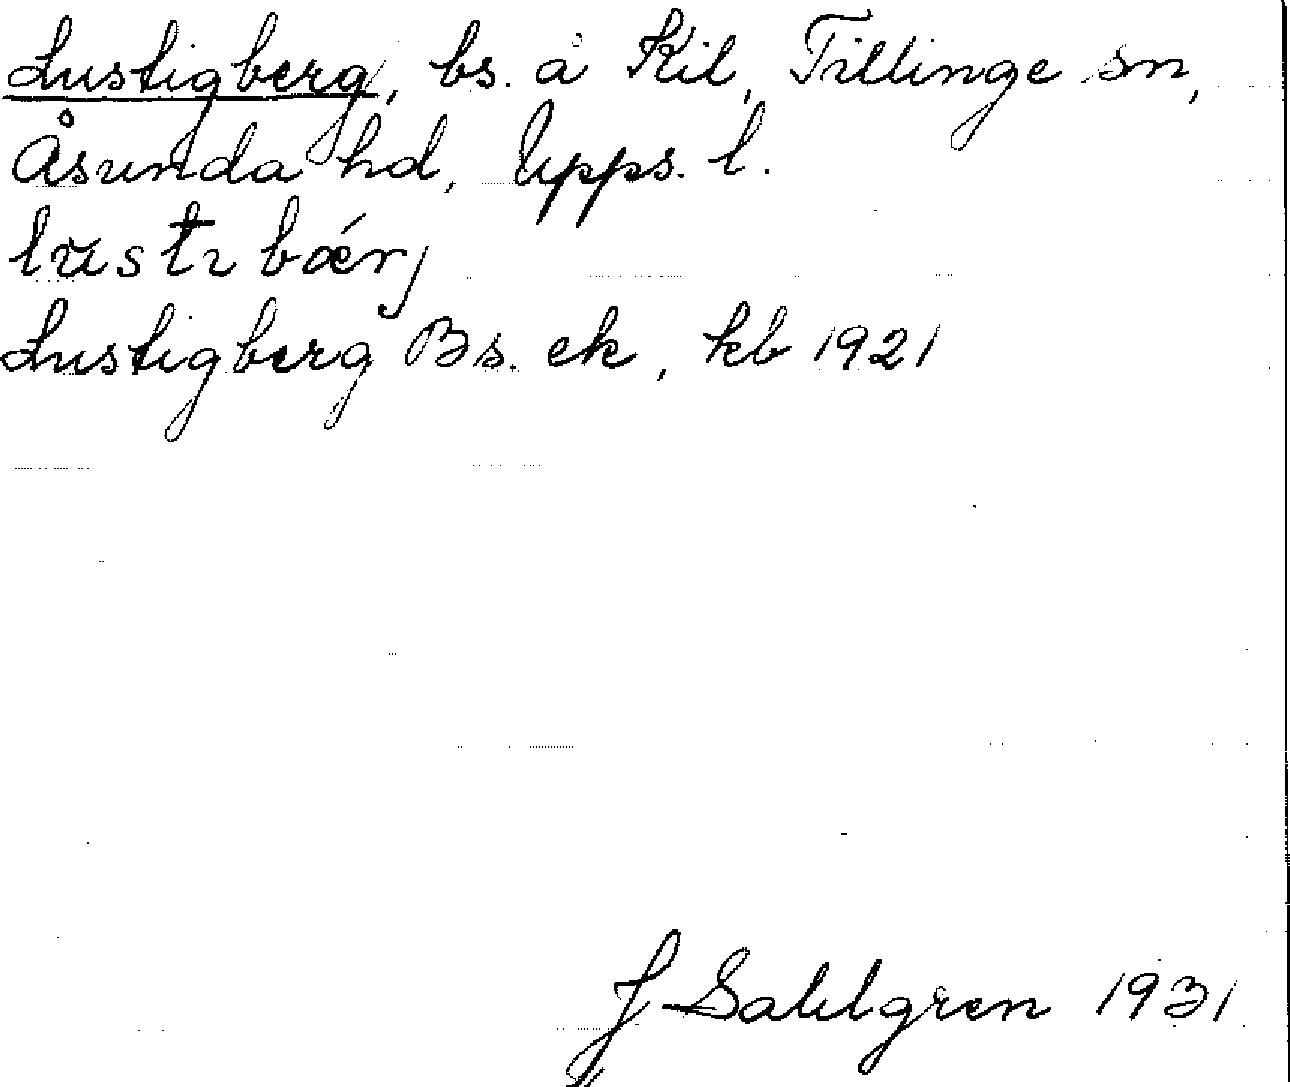 Lustigberg, bs. å Kil, Tillinge sn,
Åsunda hd, Upps. l.
lustɩbærj
Lustigberg Bs. ek, kb 1921
J Sahlgren 1931